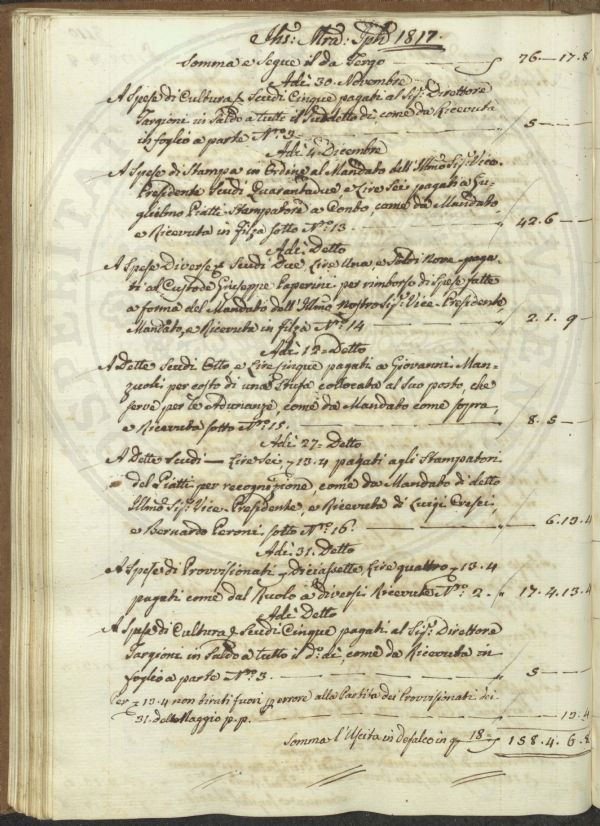 Jhs: Mra: Jph 1817.
Somma e Segue il da Tergo — 76.—17.8
Adì 30. Novembre
A Spese di Cultura Scudi Cinque pagati al Sig: Direttore
Targioni in Saldo a tutto il Suddetto dì, come da Ricevuta
in foglio a parte N.° 3. — 5 — —
Adì 4. Dicembre
A Spese di Stampa in Ordine al Mandato dell'Illmo Sig: Vice-
Presidente Scudi Quarantadue e Lire Sei pagati a Gu-
glielmo Piatti Stampatore a Conto, come da Mandato,
e Ricevuta in filza sotto N.° 13 — 42.6 — —
Adì Detto
A Spese Diverse Scudi Due, Lire Una, e Soldi Nove paga-
ti al Custode Giuseppe Paperini per rimborso di Spese fatte
a forma del Mandato dell'Illmo Nostro Sig: Vice-Presidente,
Mandato, e Ricevuta in filza N.° 14 — 2.1.9 —
Adì 12= Detto
A Dette Scudi Otto, e Lire Cinque pagati a Giovanni Man-
zuoli per costo di una Stufa collocata al Suo posto, che
serve per le Adunanze, come da Mandato come sopra,
e Ricevuta sotto N.° 15. — 8.5 —
Adì 27= Detto
A Dette Scudi — Lire Sei, 13.4 pagati agli Stampatori
del Piatti per recognizione, come da Mandato di detto
Illmo Sig: Vice-Presidente, e Ricevuta di Luigi Cresci,
e Bernardo Peroni, sotto N.° 16. — 6.13.4
Adì 31. Detto
A Spese di Provvisionati diciassette, Lire quattro 13.4
pagati come dal Ruolo a diversi Ricevute N.° 2. — 17.4.13.4
Adì Detto
A Spese di Cultura Scudi Cinque pagati al Sig: Direttore
Targioni in Saldo a tutto il d.° dì, come da Ricevuta in
foglio a parte N.° 3. — 5 — —
Per 13.4 non tirati fuori p errore alla Partita dei Provvisionati dei
31. dello Maggio p.p. — 13.4
Somma l'Uscita in defalco in 18 — 158.4.6.8